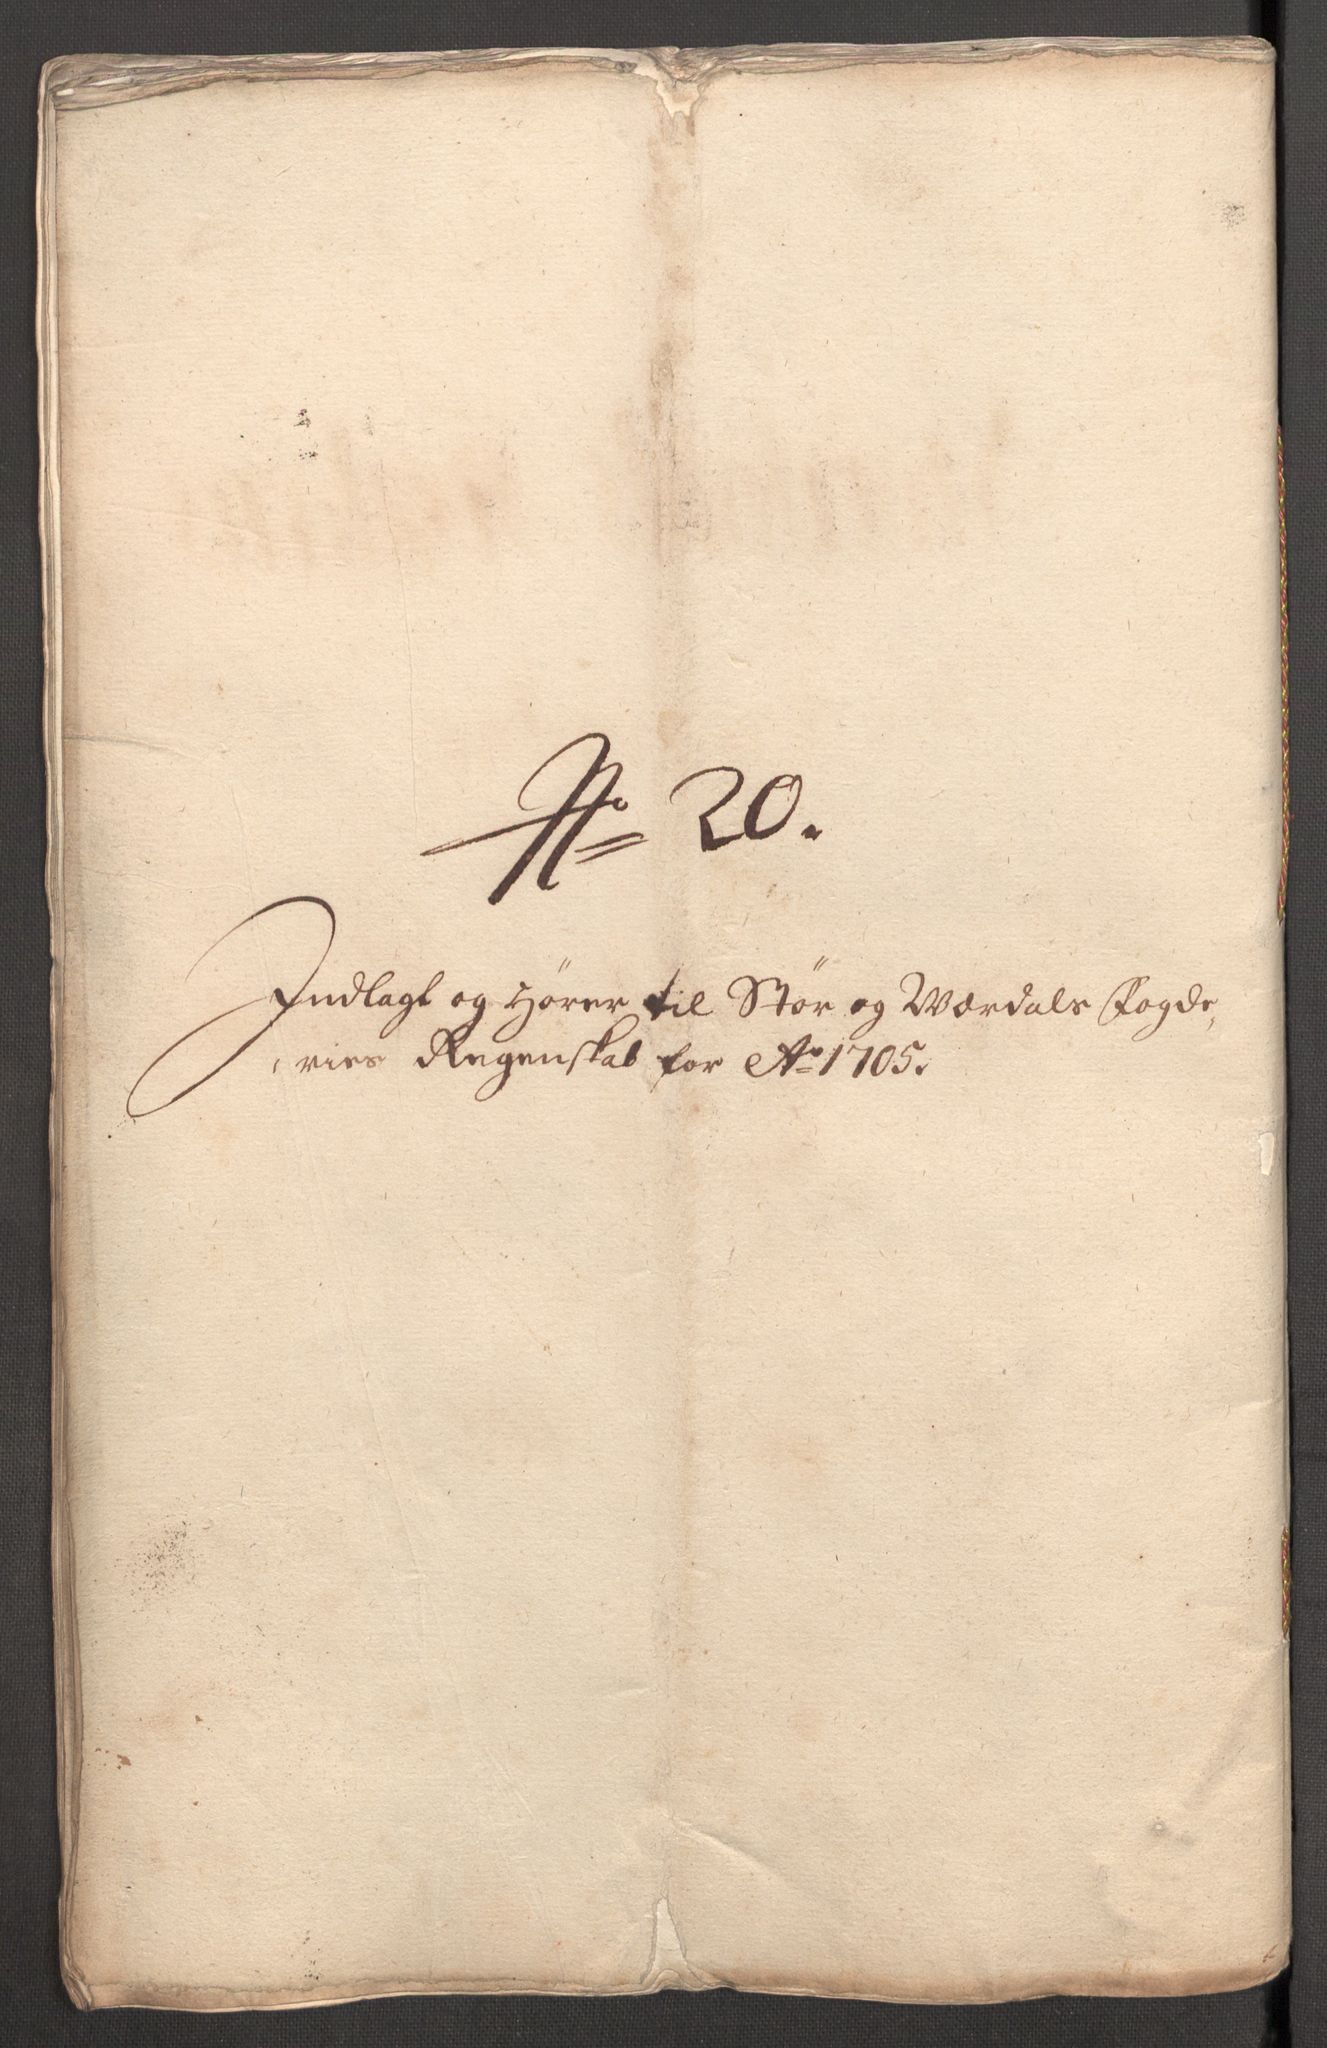 No 20.
Indlagt og hører til Stør og Wærdals Fogde,
ries Regenskab for Ao 1705.